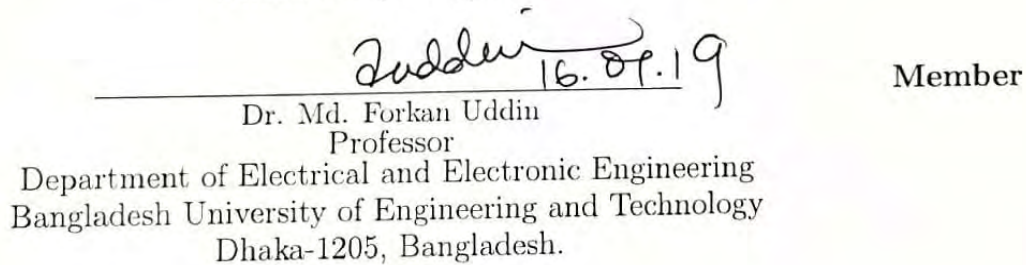 16. 07. 19
Member
Dr. Md. Forkan Uddin
Professor
Department of Electrical and Electronic Engineering
Bangladesh University of Engineering and Technology
Dhaka-1205, Bangladesh.